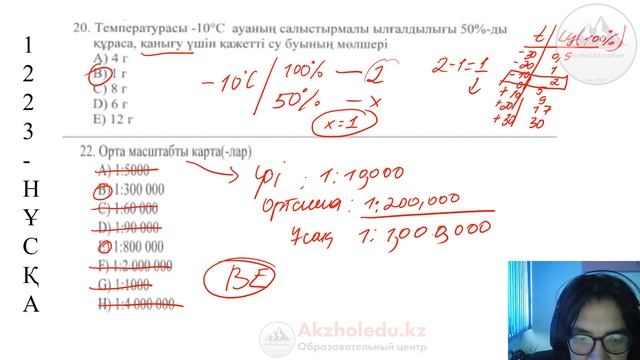 1
2
2
3
-
Н
Ұ
С
Қ
А
20. Температурасы -10°С ауаның салыстырмалы ылғалдылығы 50%-ды
құраса, қанығу үшін қажетті су буының мөлшері
A) 4 г
B) 1 г
C) 8 г
D) 6 г
E) 12 г
-10°C
100% — 2
50% — x
x=1
2-1=1
22. Орта масштабты карта(-лар)
A) 1:5000
B) 1:300 000
C) 1:60 000
D) 1:90 000
E) 1:800 000
F) 1:2 000 000
G) 1:1000
H) 1:4 000 000
Ірі : 1:10,000
орташа : 1:200,000
Ұсақ 1:1,000,000
BE
Akzholedu.kz
Образовательный центр